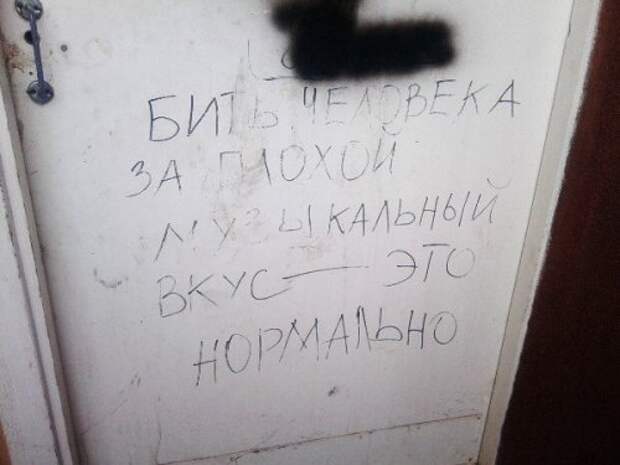 БИТЬ ЧЕЛОВЕКА
ЗА ПЛОХОЙ
МУЗЫКАЛЬНЫЙ
ВКУС — ЭТО
НОРМАЛЬНО